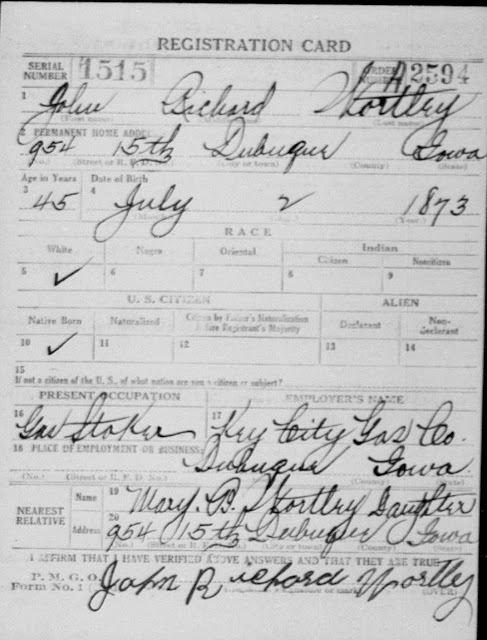 REGISTRATION CARD
SERIAL NUMBER 1515 ORDER NUMBER A2594
1 John Richard Wortley
(First name) (Last name)
2 PERMANENT HOME ADDRESS:
954 15th Dubuque Iowa
(No.) (Street or R. F. D. No.) (City or town) (County) (State)
Age in Years Date of Birth
3 45 4 July 2 1873
(Month) (Day) (Year)
RACE
White Negro Oriental Indian
Citizen Noncitizen
5 ✓ 6 7 8 9
U. S. CITIZEN ALIEN
Native Born Naturalized Citizen by Father's Naturalization Before Registrant's Majority Declarant Non-declarant
10 ✓ 11 12 13 14
15
If not a citizen of the U. S., of what nation are you a citizen or subject?
PRESENT OCCUPATION EMPLOYER'S NAME
16 Gas Stoker 17 Key City Gas Co.
18 PLACE OF EMPLOYMENT OR BUSINESS:
Dubuque Iowa.
(No.) (Street or R. F. D. No.) (County) (State)
NEAREST RELATIVE Name 19 Mary. B. Wortley Daughter
Address 20 954 15th Dubuque Iowa
(No.) (Street or R. F. D. No.) (City or town) (County) (State)
I AFFIRM THAT I HAVE VERIFIED ABOVE ANSWERS AND THAT THEY ARE TRUE
P. M. G. O.
Form No. 1 John Richard Wortley
(OVER)